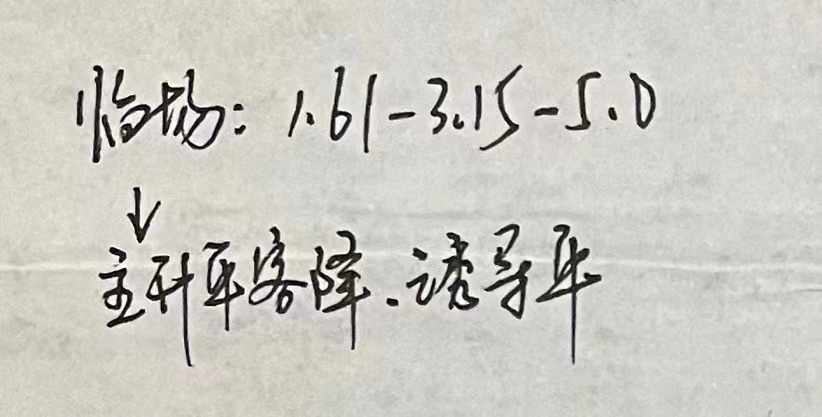 临场: 1.61-3.15-5.0
↓
主升平客降.诱导平